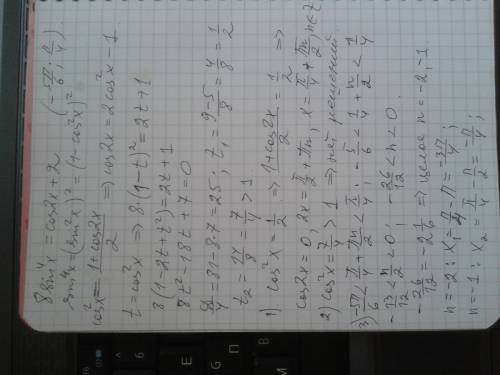 8 sin⁴x = cos2x + 2   (-5π/6; π/4)
sin⁴x = (sin²x)² = (1-cos²x)²
cos²x = (1+cos2x)/2 ⇒ cos2x = 2cos²x - 1
t = cos²x ⇒ 8·(1-t)² = 2t+1
8(1-2t+t²) = 2t+1
8t² - 18t + 7 = 0
D/4 = 81-8·7 = 25; t₁ = (9-5)/8 = 4/8 = 1/2
t₂ = 14/8 = 7/4 > 1
1) cos²x = 1/2 ⇒ (1+cos2x)/2 = 1/2 ⇒
cos2x = 0, 2x = π/2 + πn, x = π/4 + πn/2, n∈Z
2) cos²x = 7/4 > 1 ⇒ нет решений
3) -5π/6 < π/4 + πn/2 < π/4; -5/6 < 1/4 + n/2 < 1/4
-13/12 < n/2 < 0; -26/12 < n < 0.
-26/12 = -2 1/6 ⇒ целое n = -2, -1.
n = -2: x₁ = π/4 - π = -3π/4;
n = -1: x₂ = π/4 - π/2 = -π/4